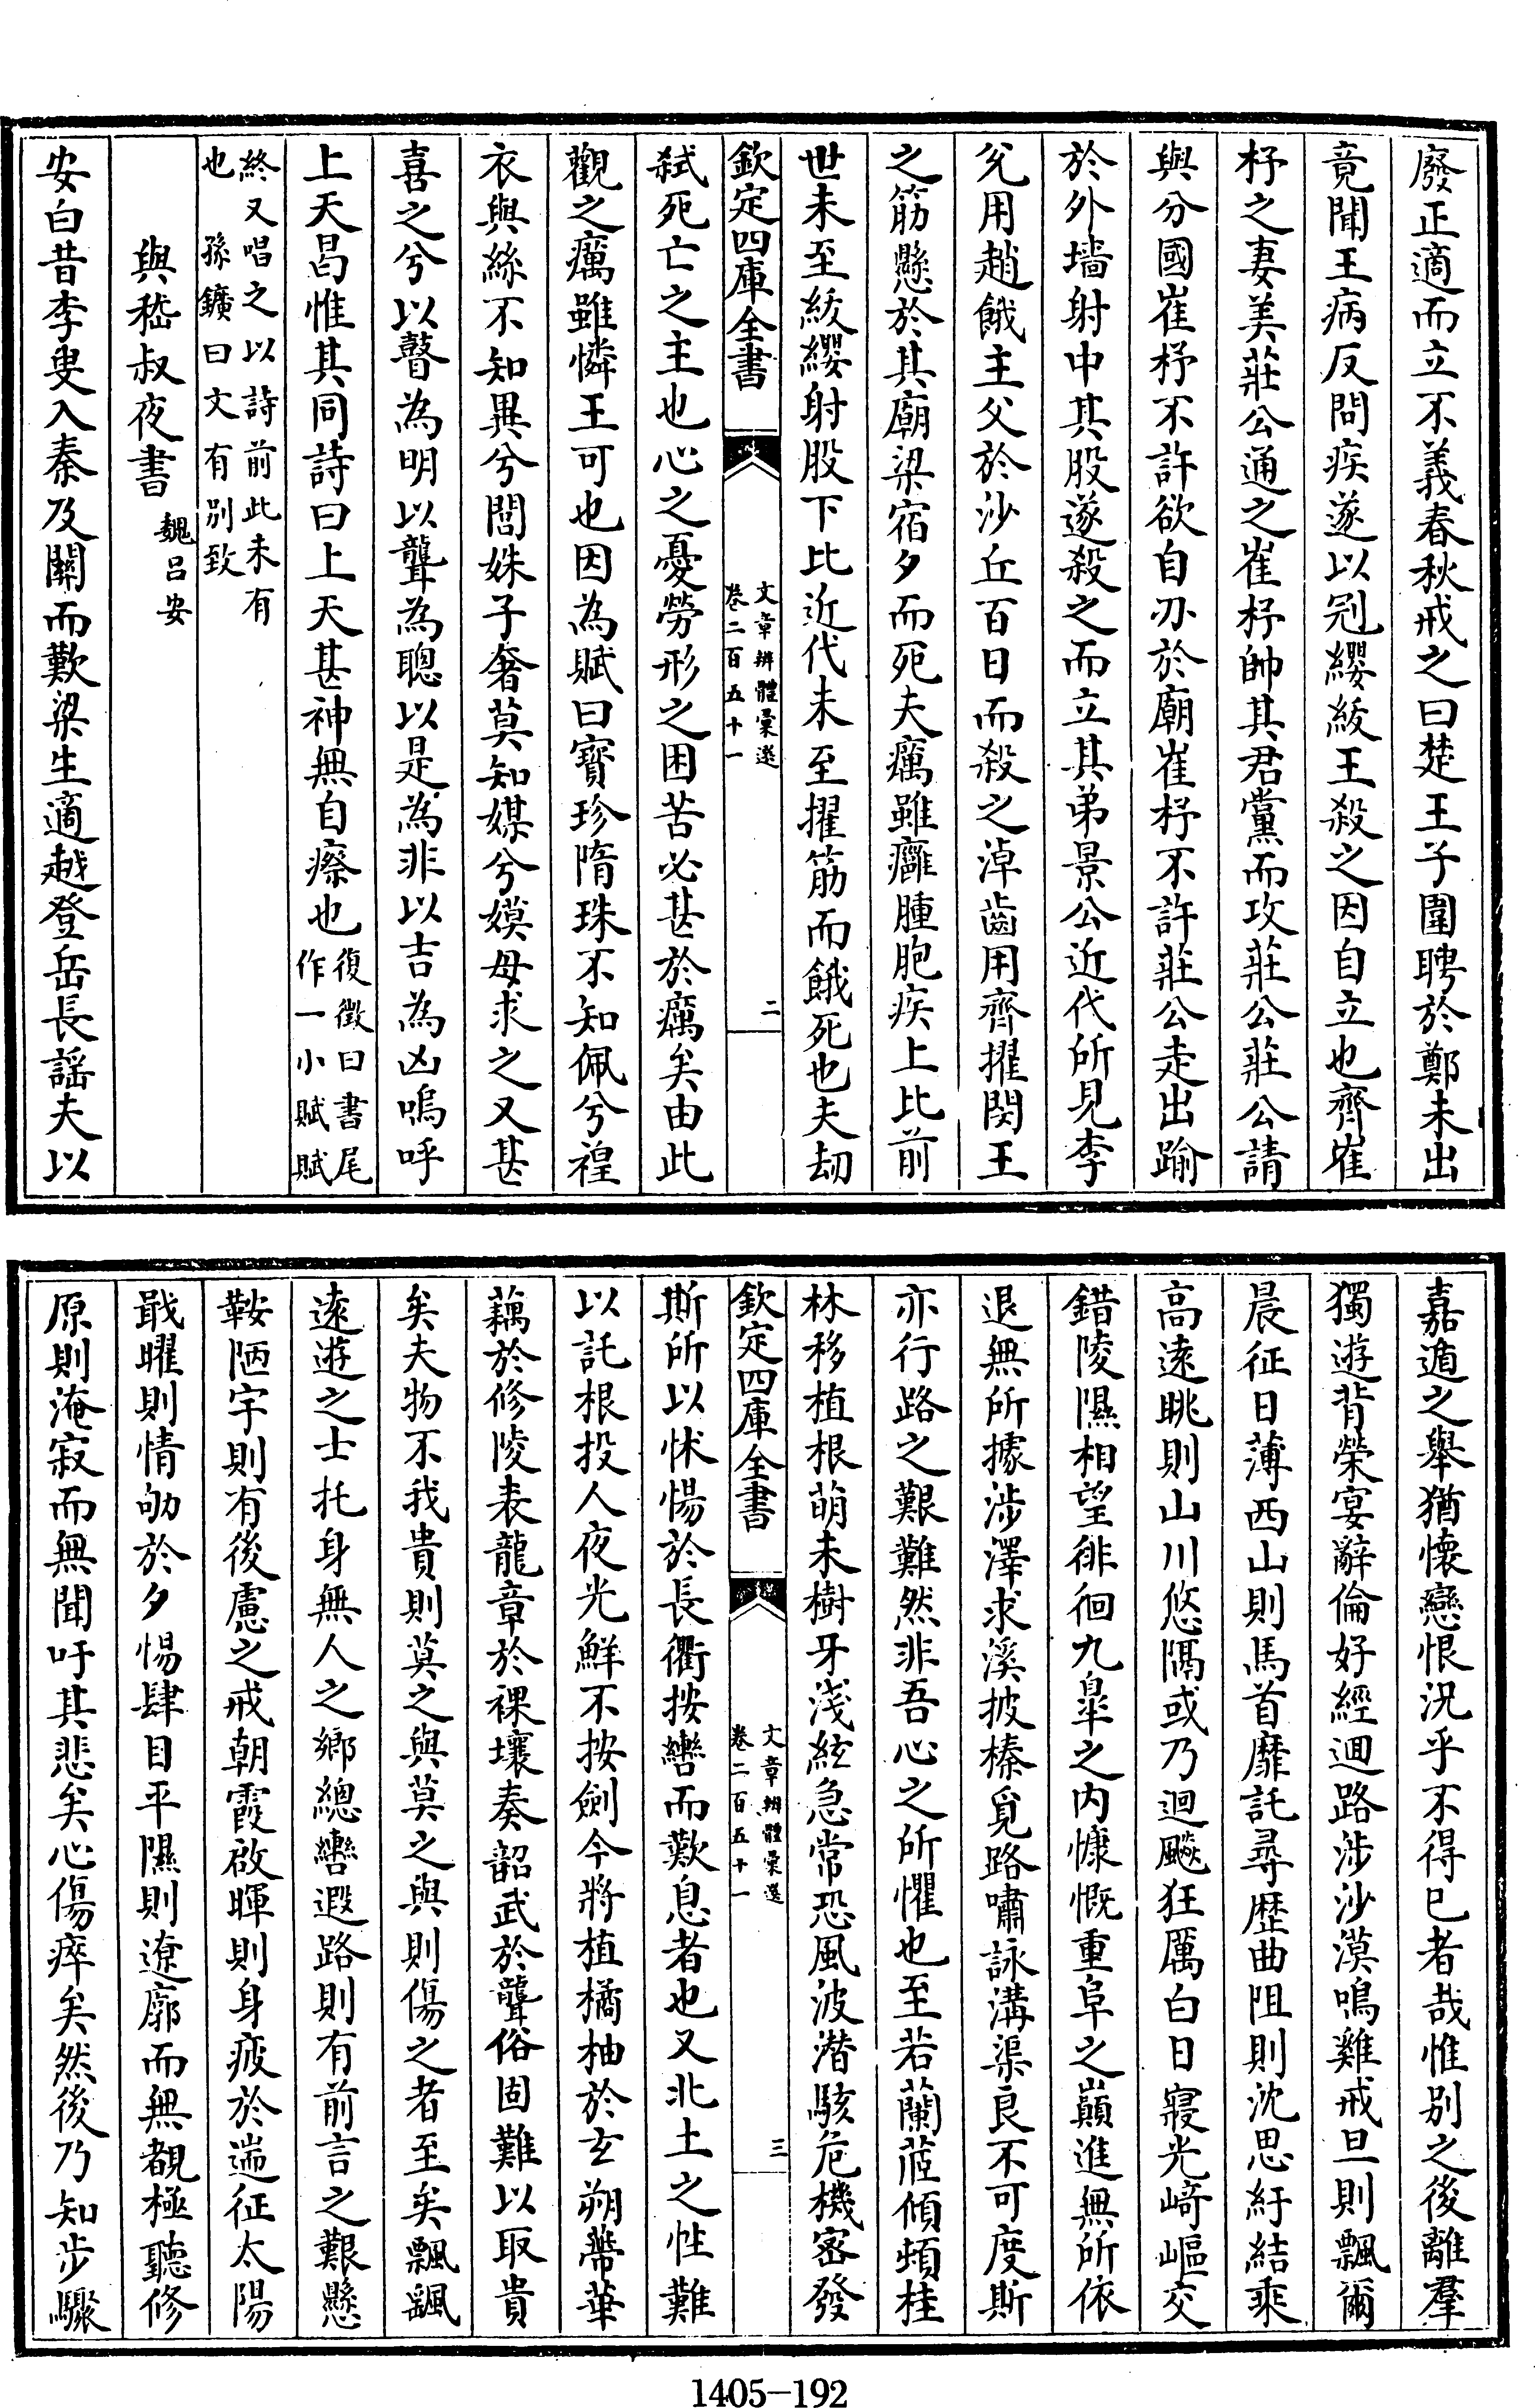 廢正適而立不義春秋戒之曰楚王子圍聘於鄭未出
竟聞王病反問疾遂以冠纓絞王殺之因自立也齊崔
杼之妻美莊公通之崔杼帥其君黨而攻莊公莊公請
與分國崔杼不許欲自刃於廟崔杼不許莊公走出踰
於外墻射中其股遂殺之而立其弟景公近代所見李
兊用趙餓主父於沙丘百日而殺之淖齒用齊擢閔王
之筋懸於其廟梁宿夕而死夫癘雖癰腫胞疾上比前
世未至絞纓射股下比近代未至擢筋而餓死也夫劫
欽定四庫全書
文章辨體彙選
卷二百五十一
二
弑死亡之主也心之憂勞形之困苦必甚於癘矣由此
觀之癘雖憐王可也因為賦曰寳珍隋珠不知佩兮褘
衣與絲不知異兮閭姝子奢莫知媒兮嫫母求之又甚
喜之兮以瞽為明以聾為聰以是為非以吉為凶嗚呼
上天曷惟其同詩曰上天甚神無自瘵也復徵曰書尾
作一小賦賦
終又唱之以詩前此未有
也　孫鑛曰文有別致
與嵇叔夜書　魏呂安
安白昔李叟入秦及關而歎梁生適越登岳長謡夫以
嘉遁之舉猶懷戀恨況乎不得已者哉惟別之後離羣
獨逰背榮宴辭倫好經迴路涉沙漠鳴雞戒旦則飄爾
晨征日薄西山則馬首靡託尋歴曲阻則沈思紆結乘
高逺眺則山川悠隔或乃迴飈狂厲白日寢光﨑嶇交
錯陵隰相望徘徊九臯之内慷慨重阜之巔進無所依
退無所據涉澤求溪披榛覓路嘯詠溝渠良不可度斯
亦行路之艱難然非吾心之所懼也至若蘭茝傾頓桂
林移植根萌未樹牙淺絃急常恐風波潛駭危機密發
欽定四庫全書
文章辨體彙選
卷二百五十一
三
斯所以怵惕於長衢按轡而歎息者也又北土之性難
以託根投人夜光鮮不按劍今將植橘柚於玄朔蔕華
藕於修陵表龍章於裸壤奏韶武於聾俗固難以取貴
矣夫物不我貴則莫之與莫之與則傷之者至矣飄颻
逺逰之士托身無人之鄉總轡遐路則有前言之艱懸
鞍陋宇則有後慮之戒朝霞啟暉則身疲於遄征太陽
戢曜則情劬於夕惕肆目平隰則遼廓而無覩極聽修
原則淹寂而無聞吁其悲矣心傷瘁矣然後乃知步驟
1405-192